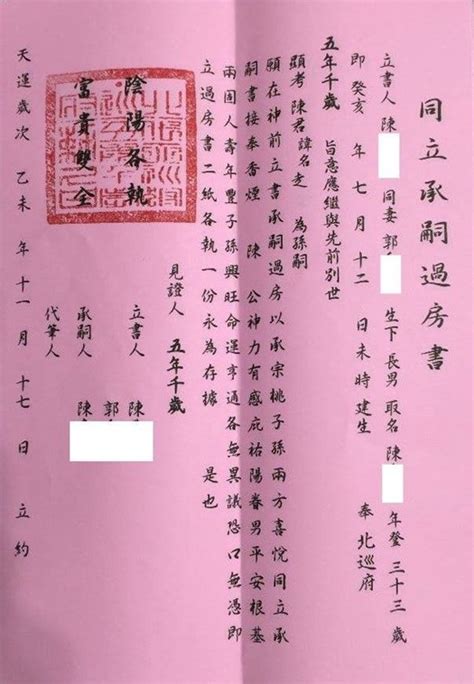 同立承嗣過房書
立書人 陳 同妻 郭 生下長男 取名 陳 年登 三十三 歲
即 癸亥 年 七 月 十二 日未時建生 奉 北巡府
五年千歲 旨意應繼與先前別世
顯考 陳君 諱名走 為孫嗣
願在神前立書承嗣過房以承宗祧子孫兩方喜悅同立承
嗣書接奉香煙 陳 公神力有感庇祐陽眷男平安根基
兩固人壽年豐子孫興旺命運亨通各無異議恐口無憑即
立過房書二紙各執一份永為存據 是也
陰陽各執
富貴雙全
見證人 五年千歲
立書人 陳
郭
承嗣人 陳
代筆人
天運歲次 乙未 年 十一 月 十七 日 立約